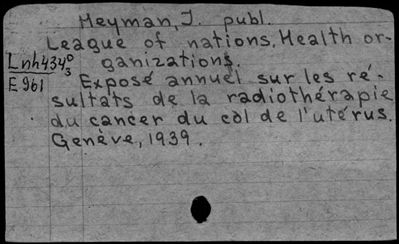 Heyman, J. publ.
League of nations. Health or-
Lnh434⁰₃ ganizations.
E961 Exposé annuel sur les ré-
sultats de la radiothérapie
du cancer du col de l'utérus.
Genève, 1939.